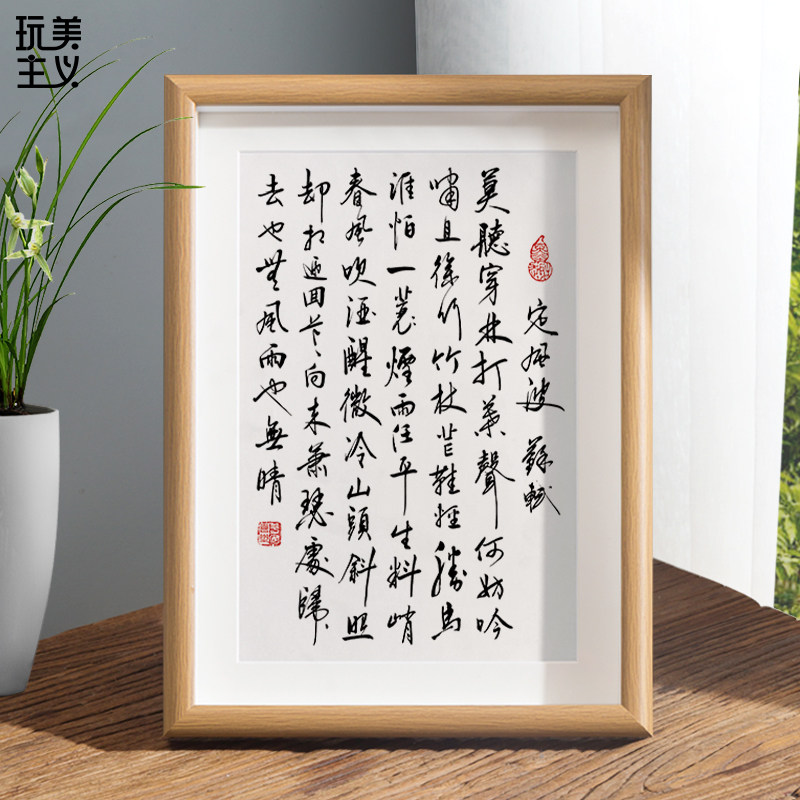 玩美
主义
定風波 蘇軾
莫聽穿林打葉聲何妨吟
嘯且徐行竹杖芒鞋輕勝馬
誰怕一蓑煙雨任平生料峭
春風吹酒醒微冷山頭斜照
却相迎回首向来蕭瑟處歸
去也無風雨也無晴